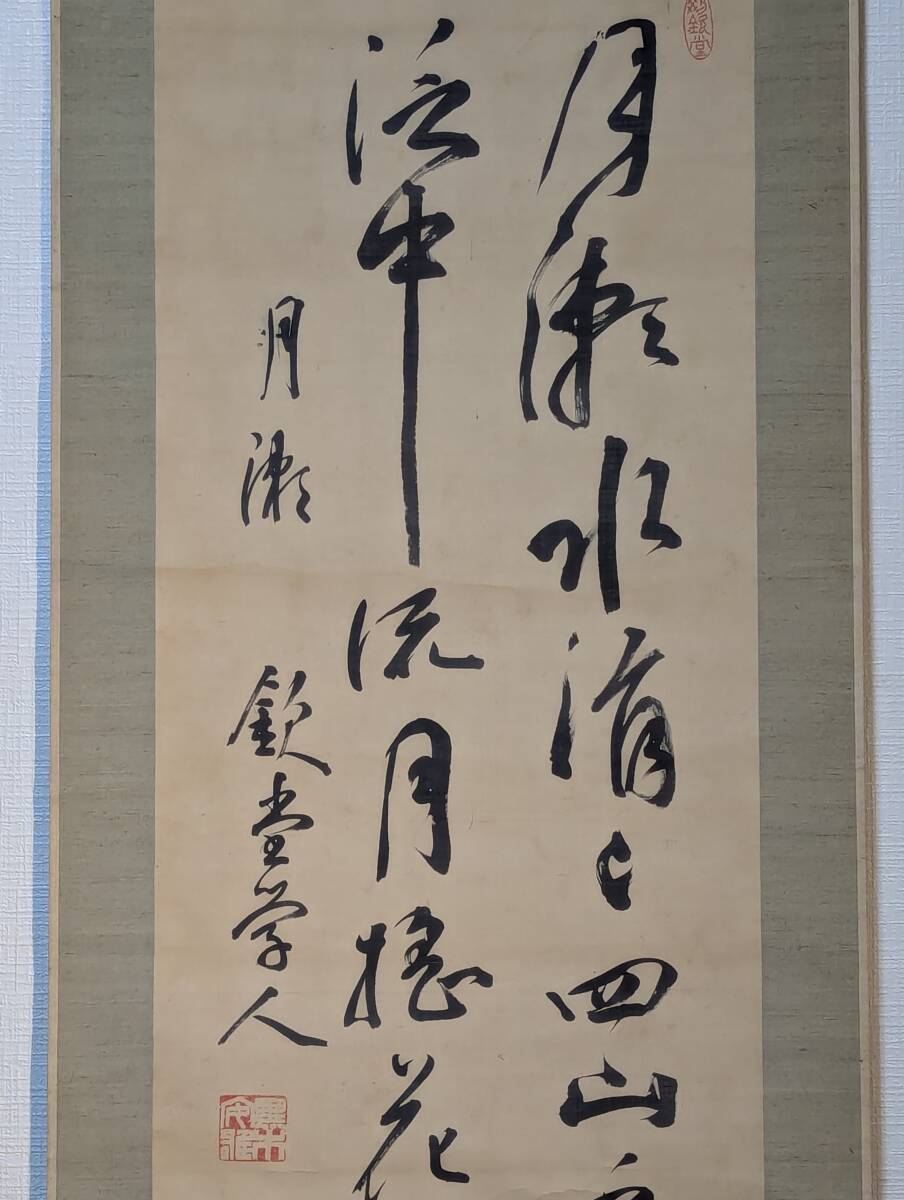 月瀬水涓々四山
泛中流月搖花
月瀬 欽堂学人